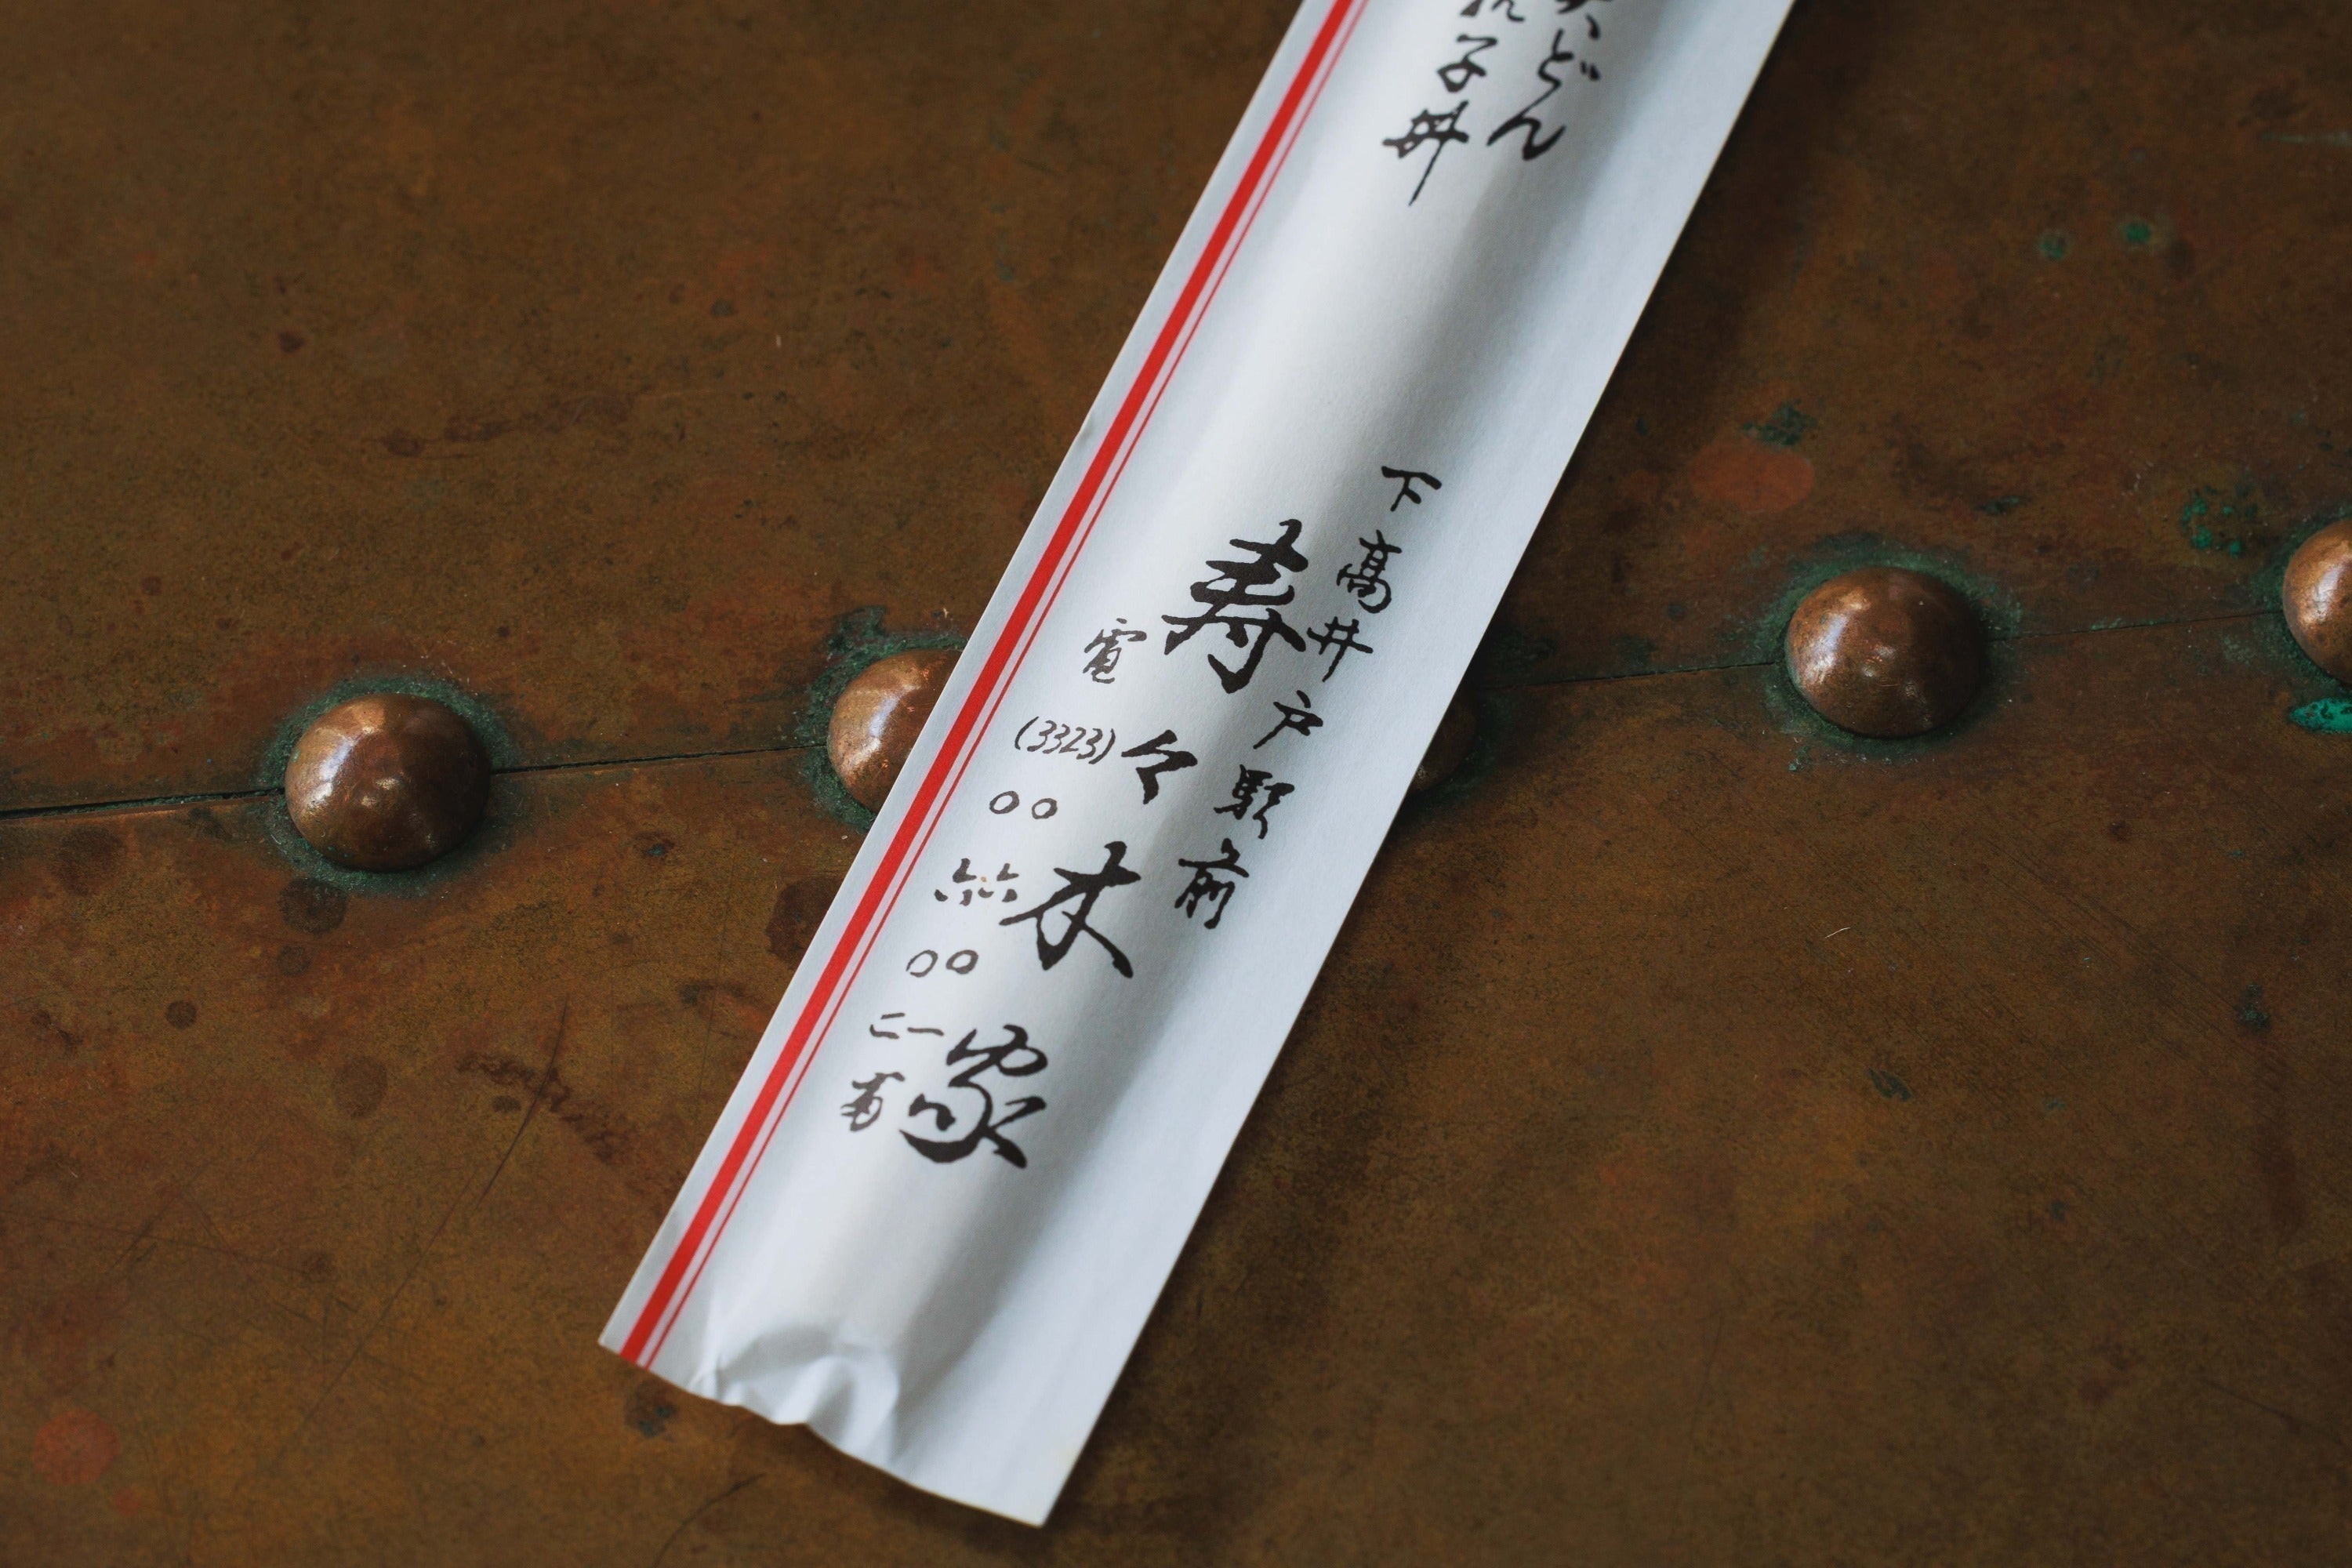 どん
子丼
下高井戸駅前
寿々木家
電(3323)〇六〇一
〇六〇二番